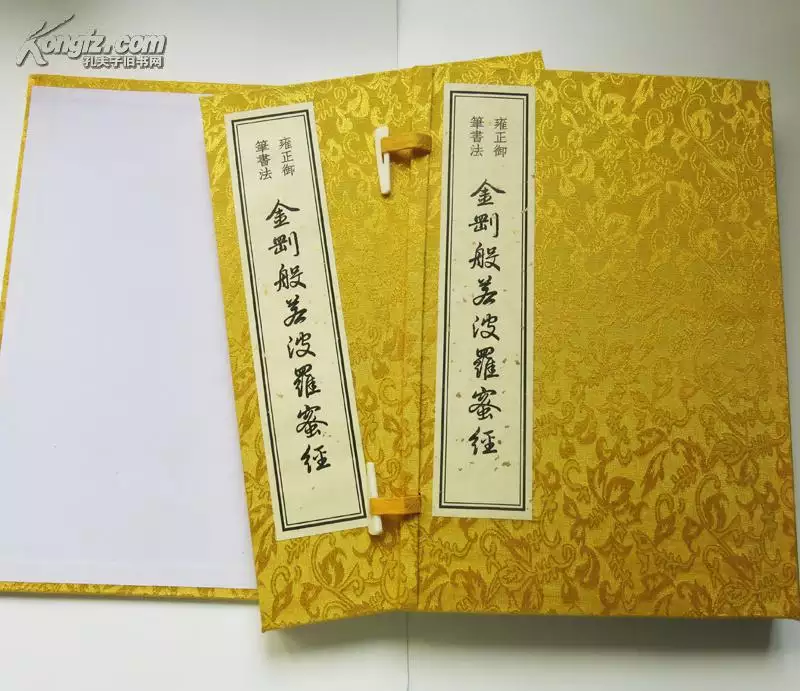 Kongfz.com
孔夫子旧书网
雍正御
筆書法
金剛般若波羅蜜經
雍正御
筆書法
金剛般若波羅蜜經